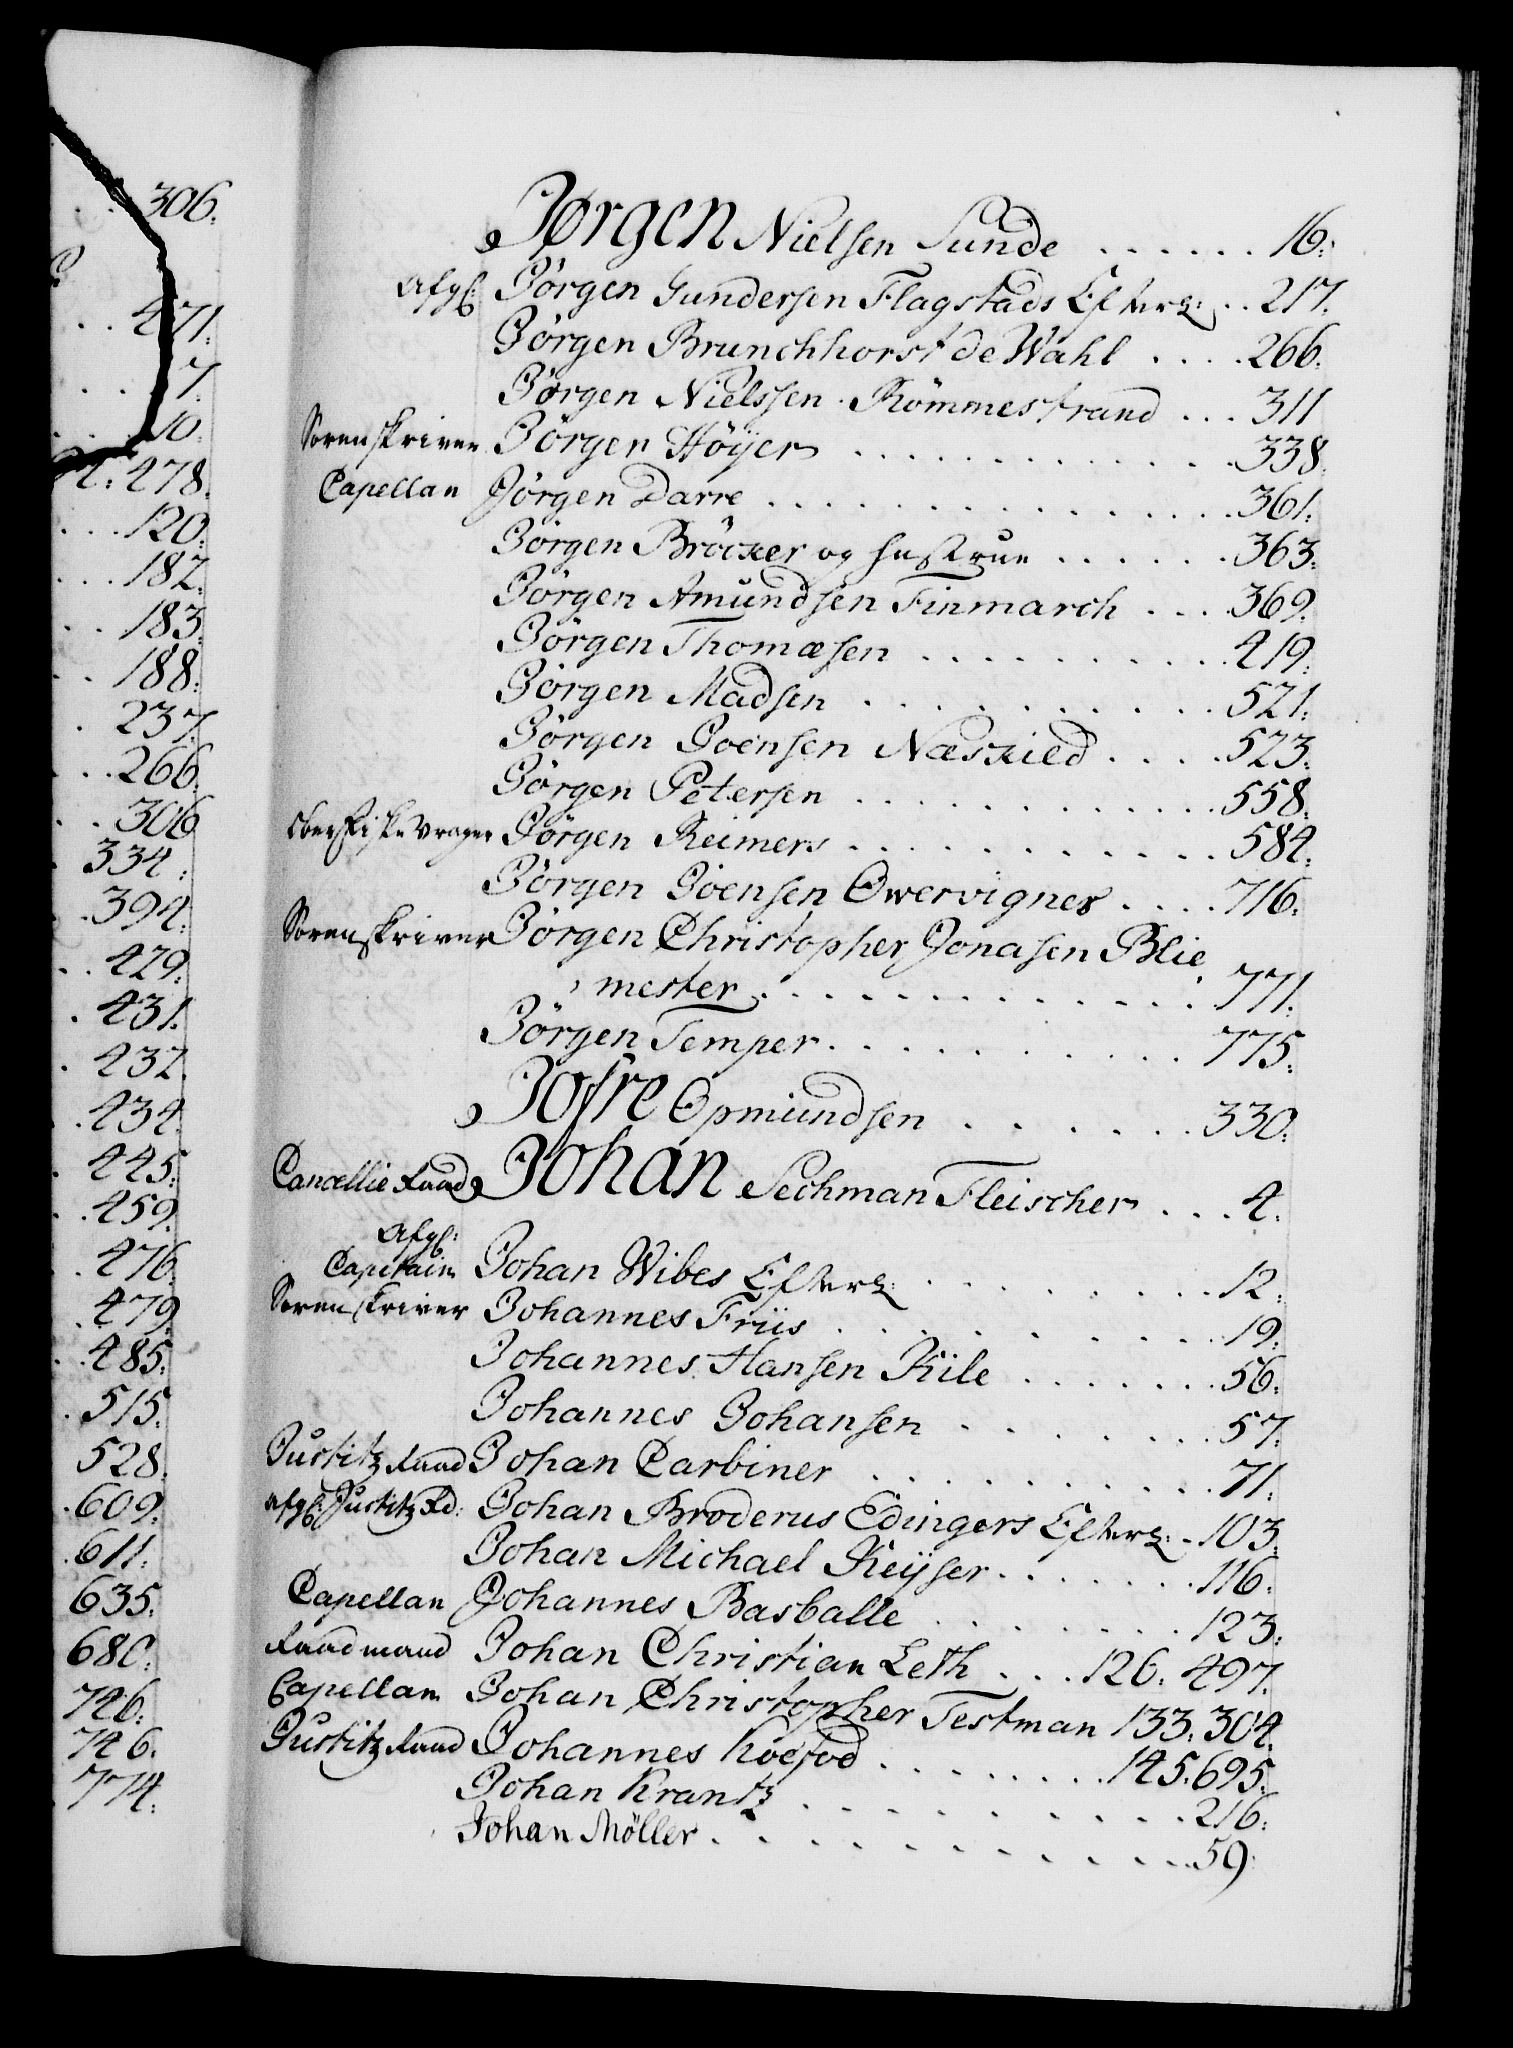 306.
471.
7.
10.
478.
120.
182.
183.
188.
237.
266.
306
334.
394.
429.
431.
432.
434.
445.
459.
476.
479.
485.
515.
528.
609.
611.
635.
680.
746.
746.
774.
Jørgen Nielsen Sunde . . . . . . 16.
Afgl: Jörgen Gundersen Flagstads Efterl: . . 217.
Jörgen Brunchhorst de Wahl . . . . 266.
Jörgen Nielssen Römmestrand . . . 311
Sorenskriver Jörgen Höyer . . . . . . . . . . . . 338.
Capellan Jörgen Darre . . . . . . . . . . . . . . . 361.
Jörgen Bröcker og hustrue . . . . . . 363.
Jörgen Amundsen Finmarch . . . 369.
Jörgen Thomæsen . . . . . . . . . . 419.
Jörgen Madsen . . . . . . . . . . . 521.
Jörgen Joensen Næskied . . . . 523.
Jörgen Petersen . . . . . . . . . . . . 558.
Ober Fiske Vrager Jörgen Reimers . . . . . . . . . . . 584.
Jörgen Joensen Owervignes . . . . 716.
Sorenskriver Jörgen Christopher Jonasen Blie
mester . . . . . . . . . . . . . 771.
Jörgen Temper . . . . . . . . . . 775.
Jofre Opmundsen . . . . . . 330.
Cancellie Raad Johan Sechman Fleischer . . . 4.
Afgl:
Capitain Johan Wibes Efterl: . . . . . . . . 12.
Sorenskriver Johannes Friis . . . . . . . . . . . 19.
Johannes Hansen Kile . . . . . . . 56.
Johannes Johansen . . . . . . . . 57.
Justitz Raad Johan Carbiner . . . . . . . . . . 71.
Afgl: Justitz Rd: Johan Broderus Edingers Efterl: . 103.
Johan Michael Keyser . . . . . . . 116.
Capellan Johannes Basballe . . . . . . . . 123.
Raadmand Johan Christian Leth . . . 126. 497.
Capellan Johan Christopher Testman 133. 304.
Justitz Raad Johannes Koefod . . . . . . . . 145. 695.
Johan Krantz . . . . . . . . . . . . 216.
Johan Möller . . . . . . . . . . . . . 59.